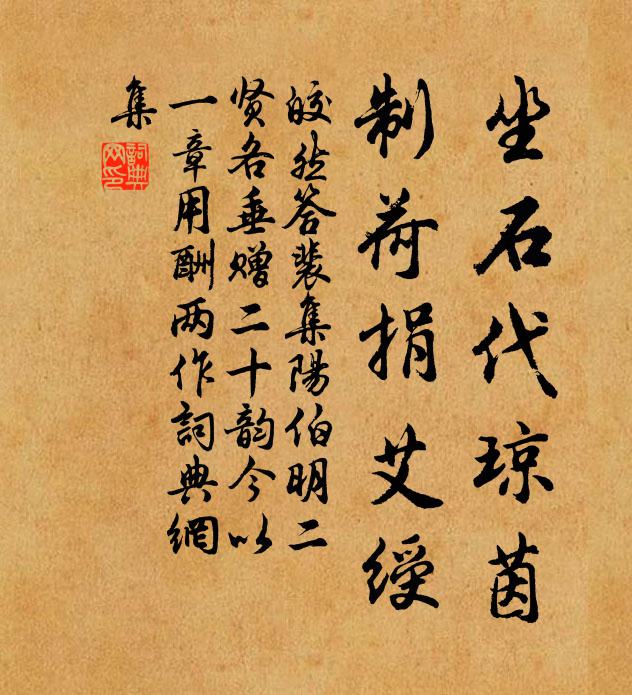 坐石代琼茵
制荷捐艾綬
皎然答裴集陽伯明二
贤各垂赠二十韵今以
一章用酬两作詞典網
集
詞典網印